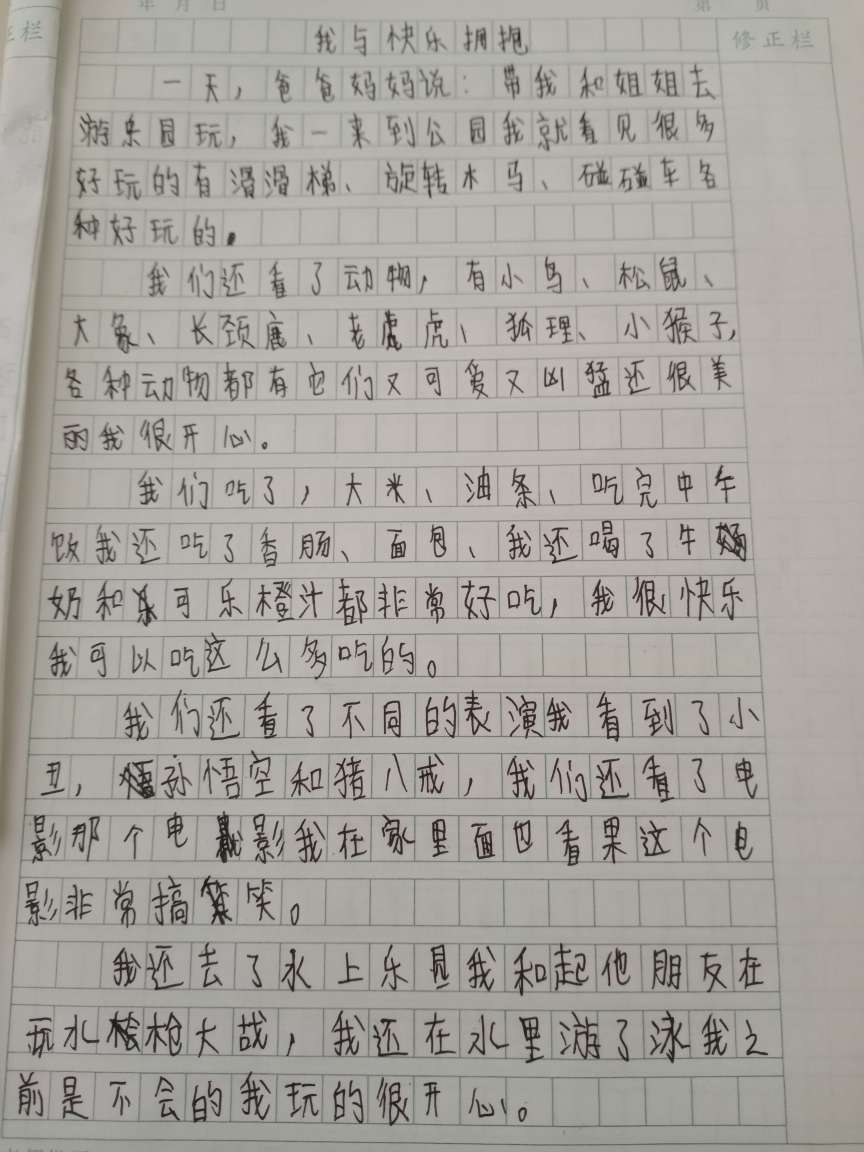 年 月 日 第 页
正栏 修正栏
我与快乐拥抱
一天，爸爸妈妈说：带我和姐姐去
游乐园玩，我一来到公园我就看见很多
好玩的有滑滑梯、旋转木马、碰碰车各
种好玩的。
我们还看了动物，有小鸟、松鼠、
大象、长颈鹿、老虎、狐理、小猴子，
各种动物都有它们又可爱又凶猛还很美
丽我很开心。
我们吃了，大米、油条、吃完中午
饭我还吃了香肠、面包、我还喝了牛
奶和可乐橙汁都非常好吃，我很快乐
我可以吃这么多吃的。
我们还看了不同的表演我看到了小
丑，孙悟空和猪八戒，我们还看了电
影那个电影我在家里面也看果这个电
影非常搞笑。
我还去了水上乐园我和起他朋友在
玩水枪大战，我还在水里游了泳我之
前是不会的我玩的很开心。